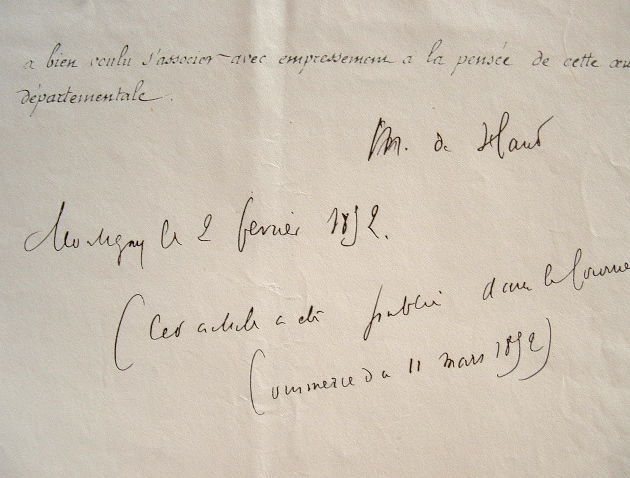 a bien voulu s'associer avec empressement à la pensée de cette œu
départementale.
M. de Haut
Montigny le 2 fevrier 1892.
(Cet article a été publié dans le Journ
Commerce du 11 mars 1892)